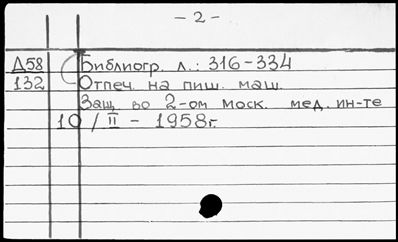 - 2 -
Д58 Библиогр. л.: 316-334
132 Отпеч. на пиш. маш.
Защ. во 2-ом моск. мед. ин-те
10 / II - 1958г.